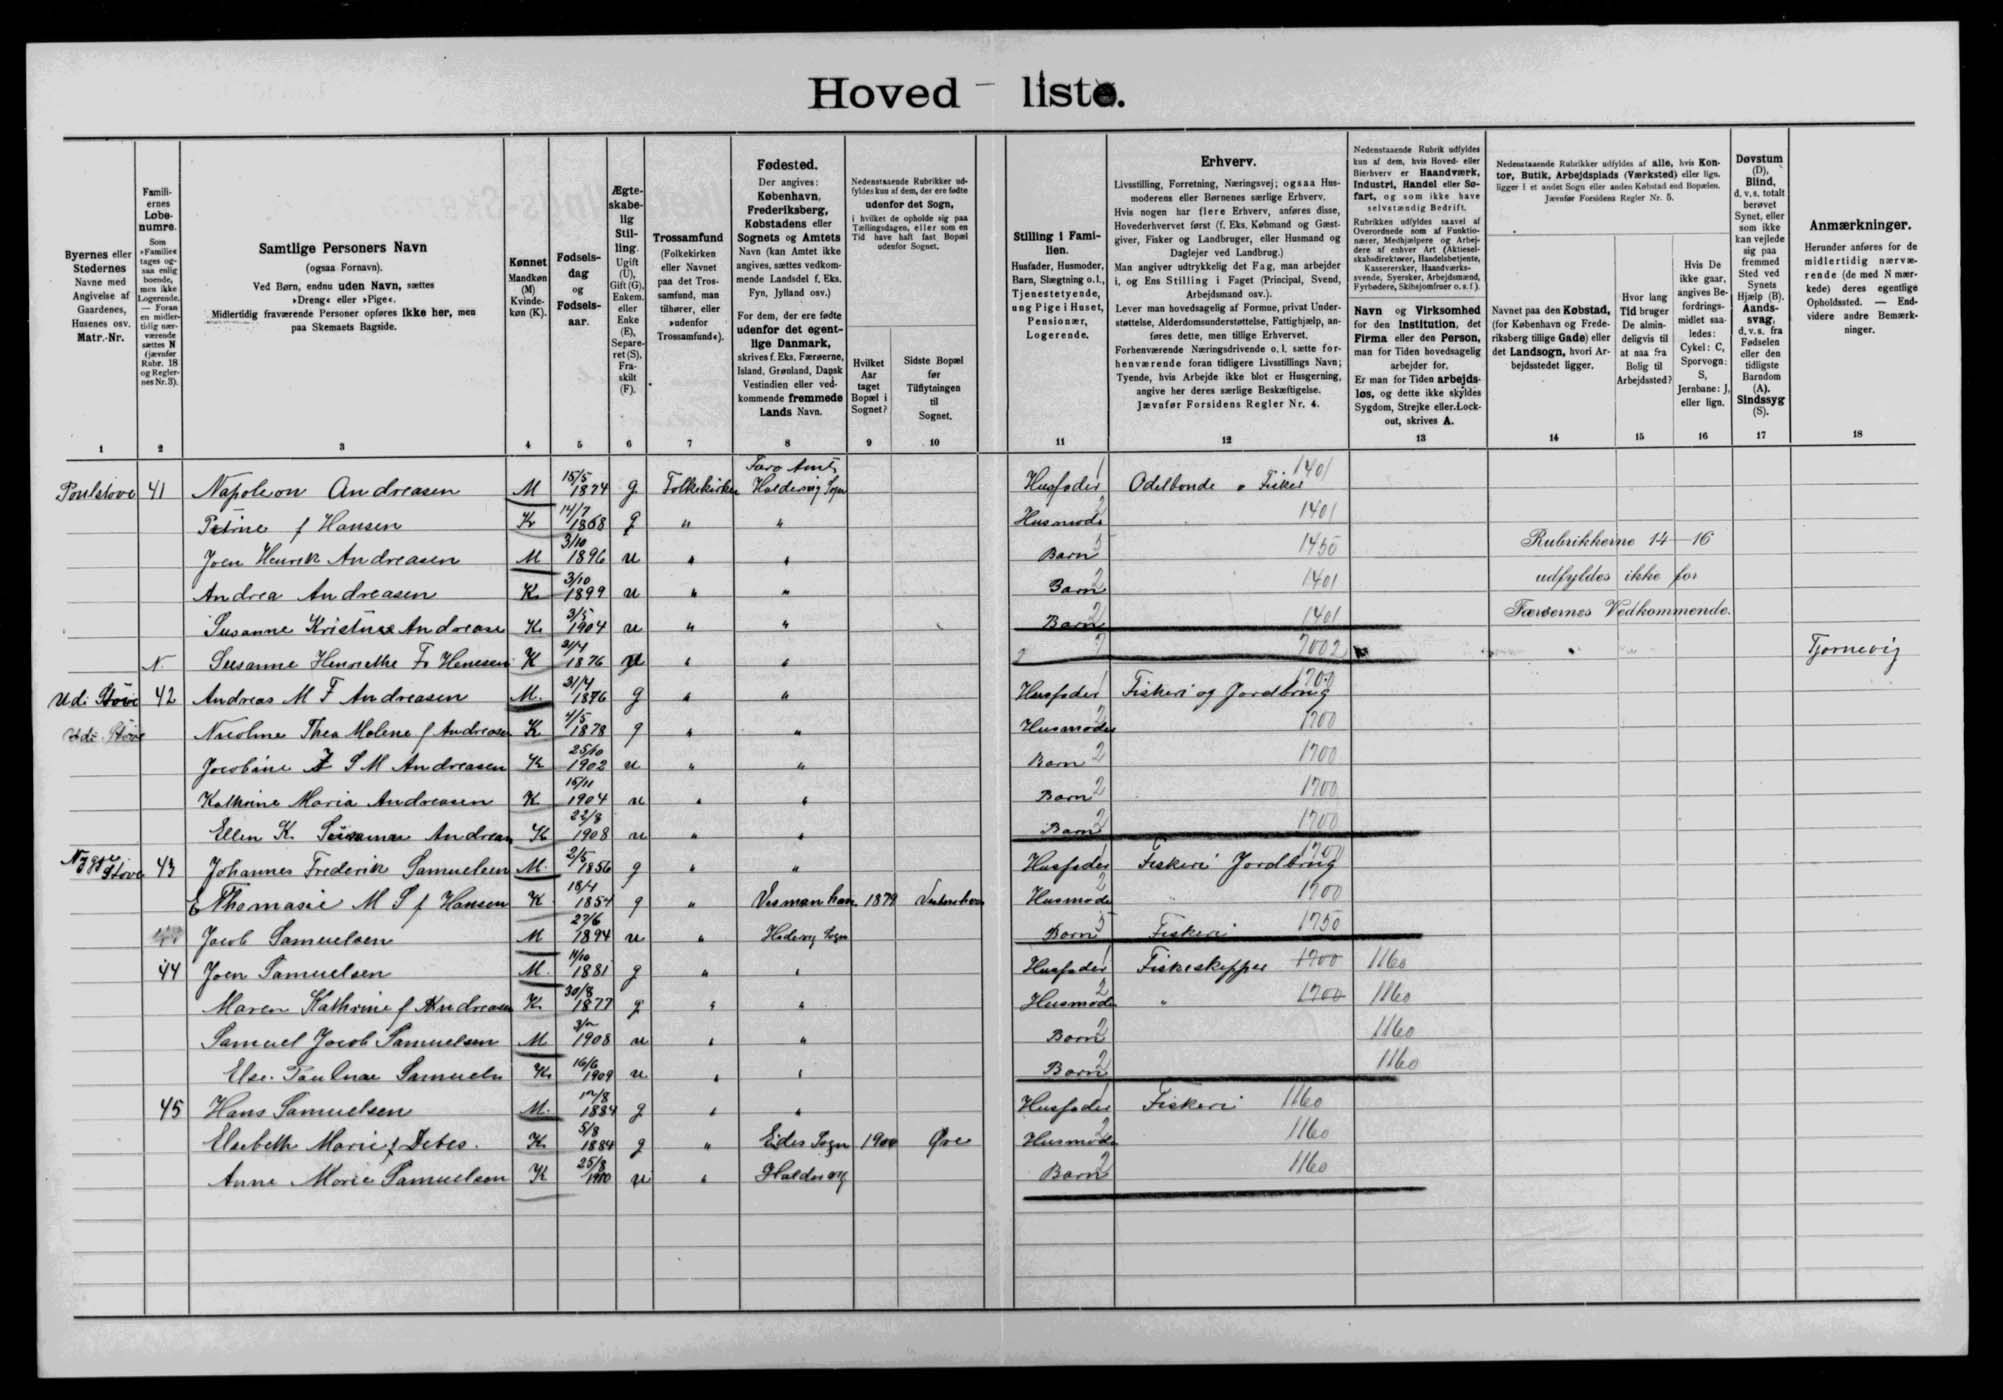 Hoved - liste.
Byernes eller Stedernes Navne med Angivelse af Gaardenes, Husenes osv. Matr.-Nr.
Familiernes Løbenumre. Som »Familie« tages ogsaa enlig boende, men ikke Logerende. — Foran en midlertidig nærværende sættes N (jævnfør Rubr. 18 og Regler- nes Nr. 3).
Samtlige Personers Navn (ogsaa Fornavn). Ved Børn, endnu uden Navn, sættes »Dreng« eller »Pige«. Midlertidig fraværende Personer opføres ikke her, men paa Skemaets Bagside.
Kønnet Mandkøn (M) Kvindekøn (K).
Fødselsdag og Fødselsaar.
Ægteskabelig Stilling. Ugift (U), Gift (G), Enkem. eller Enke (E), Separeret (S), Fraskilt (F).
Trossamfund (Folkekirken eller Navnet paa det Trossamfund, man tilhører, eller »udenfor Trossamfund«).
Fødested. Der angives: København, Frederiksberg, Købstadens eller Sognets og Amtets Navn (kan Amtet ikke angives, sættes vedkommende Landsdel f. Eks. Fyn, Jylland osv.) For dem, der ere fødte udenfor det egentlige Danmark, skrives f. Eks. Færøerne, Island, Grønland, Dansk Vestindien eller vedkommende fremmede Lands Navn.
Nedenstaaende Rubrikker udfyldes kun af dem, der ere fødte udenfor det Sogn, i hvilket de opholde sig paa Tællingsdagen, eller som en Tid have haft fast Bopæl udenfor Sognet.
Hvilket Aar taget Bopæl i Sognet?
Sidste Bopæl før Tilflytningen til Sognet.
Stilling i Familien. Husfader, Husmoder, Barn, Slægtning o. l., Tjenestetyende, ung Pige i Huset, Pensionær, Logerende.
Erhverv. Livsstilling, Forretning, Næringsvej; ogsaa Husmoderens eller Børnenes særlige Erhverv. Hvis nogen har flere Erhverv, anføres disse, Hovederhvervet først (f. Eks. Købmand og Gæstgiver, Fisker og Landbruger, eller Husmand og Daglejer ved Landbrug.) Man angiver udtrykkelig det Fag, man arbejder i, og Ens Stilling i Faget (Principal, Svend, Arbejdsmand osv.). Lever man hovedsagelig af Formue, privat Understøttelse, Alderdomsunderstøttelse, Fattighjælp, anføres dette, men tillige Erhvervet. Forhenværende Næringsdrivende o. l. sætte forhenværende foran tidligere Livsstillings Navn; Tyende, hvis Arbejde ikke blot er Husgerning, angive her deres særlige Beskæftigelse. Jævnfør Forsidens Regler Nr. 4.
Nedenstaaende Rubrik udfyldes kun af dem, hvis Hoved- eller Bierhverv er Haandværk, Industri, Handel eller Søfart, og som ikke have selvstændig Bedrift. Rubrikken udfyldes saavel af Overordnede som af Funktionærer, Medhjælpere og Arbejdere af enhver Art (Aktieselskabsdirektører, Handelsbetjente, Kasserersker, Haandværkssvende, Syersker, Arbejdsmænd, Fyrbødere, Skibsjomfruer o. s. f.).
Navn og Virksomhed for den Institution, det Firma eller den Person, man for Tiden hovedsagelig arbejder for. Er man for Tiden arbejdsløs, og dette ikke skyldes Sygdom, Strejke eller Lockout, skrives A.
Nedenstaaende Rubrikker udfyldes af alle, hvis Kontor, Butik, Arbejdsplads (Værksted) eller lign. ligger i et andet Sogn eller anden Købstad end Bopælen. Jævnfør Forsidens Regler Nr. 5.
Navnet paa den Købstad, (for København og Frederiksberg tillige Gade) eller det Landsogn, hvori Arbejdsstedet ligger.
Hvor lang Tid bruger De almindeligvis til at naa fra Bolig til Arbejdssted?
Hvis De ikke gaar, angives Befordringsmidlet saaledes: Cykel: C, Sporvogn: S, Jernbane: J, eller lign.
Døvstum (D), Blind, d. v. s. totalt berøvet Synet, eller som ikke kan vejlede sig paa fremmed Sted ved Synets Hjælp (B). Aandssvag, d. v. s. fra Fødselen eller den tidligste Barndom (A). Sindssyg (S).
Anmærkninger. Herunder anføres for de midlertidig nærværende (de med N mærkede) deres egentlige Opholdssted. — Endvidere andre Bemærkninger.
1 2 3 4 5 6 7 8 9 10 11 12 13 14 15 16 17 18
Færø Amt
Poulstove 41 Napoleon Andreasen M 15/5 1874 g Folkekirken Haldersvig Sogn Husfader 1 Odelbonde o Fisker 1401
Petrine f Hansen K 14/7 1868 g " " Husmoder 2 1401
Joen Henrik Andreasen M 3/10 1896 u " " Barn 5 1450 Rubrikkerne 14 - 16
Andrea Andreasen K 3/10 1899 u " " Barn 2 1401 udfyldes ikke for
Susanne Kristine Andrease K 3/5 1904 u " " Barn 2 1401 Færøernes Vedkommende.
N Susanne Henriette F. Henesen K 21/4 1876 u " " 7 7002 Tjørnevig
Udi Stove 42 Andreas M F Andreasen M. 31/4 1876 g " " Husfader 1 Fiskeri og Jordbrug 1700
Udi Stove Nicoline Thea Malene f Andreasen K 4/5 1878 g " " Husmoder 2 1700
Jacobine F S M Andreasen K 25/10 1902 u " " Barn 2 1700
Kathrine Maria Andreasen K 15/11 1904 u " " Barn 2 1700
Ellen K. Susanna Andreasen K 22/8 1908 u " " Barn 2 1700
Nygge Stove 43 Johannes Frederik Samuelsen M. 2/5 1856 g " " Husfader 1 Fiskeri Jordbrug 1700
Thomasie M S f Hansen K 18/4 1854 g " Vesmanhan 1879 Husmoder 2 1700
Jacob Samuelsen M 27/6 1894 u " Sogn Barn 5 Fiskeri 1750
44 Joen Samuelsen M. 11/10 1881 g " " Husfader 1 Fiskeskipper 1700 1160
Maren Kathrine f Andreasen K. 30/8 1877 g " " Husmoder 2 " 1700 1160
Samuel Jacob Samuelsen M 1908 u " " Barn 2 1160
Else Paulina Samuels K. 16/6 1909 u " " Barn 2 1160
45 Hans Samuelsen M. 1884 g " " Husfader 1 Fiskeri 1160
Elsebeth Marie f Debes. K 5/8 1884 g " Eides Sogn 1900 Øre Husmoder 2 1160
Anne Marie Samuelsen K 25/8 1910 u " Haldersvig Barn 2 1160